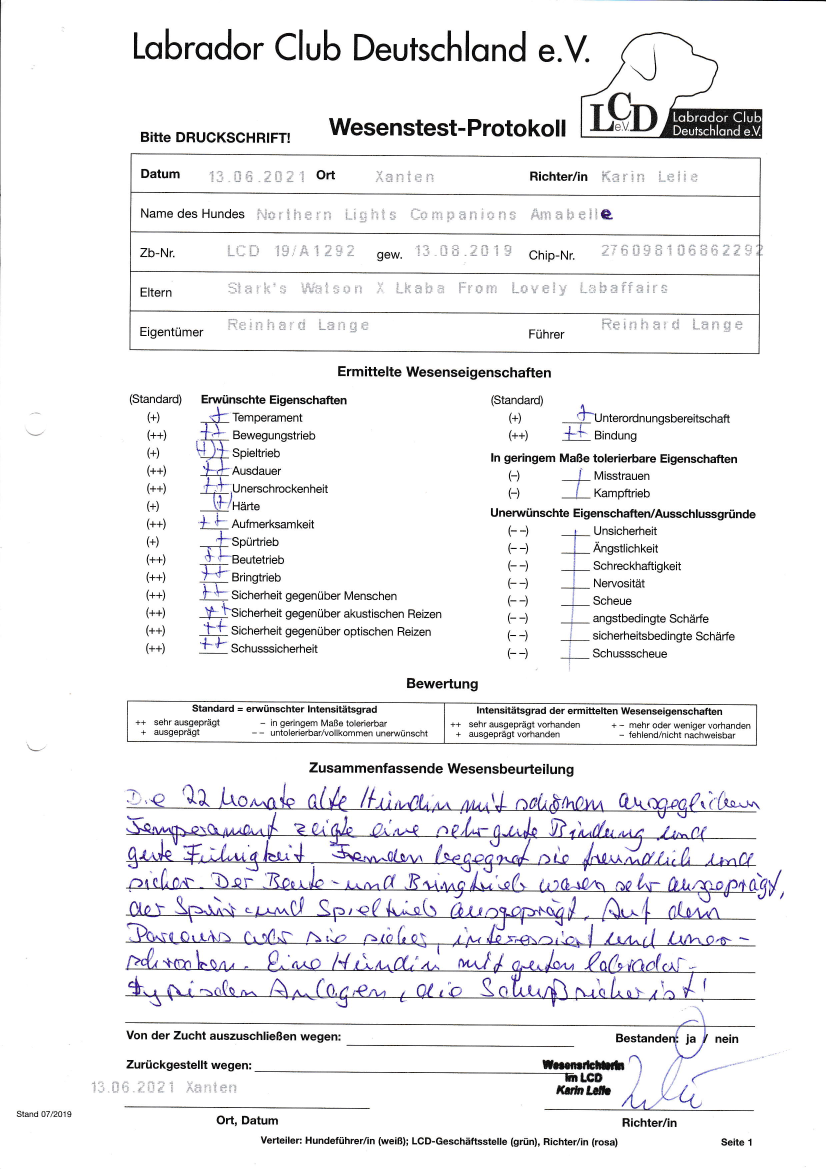 Labrador Club Deutschland e.V.
LCD e.V. Labrador Club Deutschland e.V.
Bitte DRUCKSCHRIFT! Wesenstest-Protokoll
Datum 13.06.2021 Ort Xanten Richter/in Karin Lelie
Name des Hundes Northern Lights Companions Amabelle
Zb-Nr. LCD 19/A1292 gew. 13.08.2019 Chip-Nr. 276098106862292
Eltern Stark's Watson X Lkaba From Lovely Labaffairs
Eigentümer Reinhard Lange Führer Reinhard Lange
Ermittelte Wesenseigenschaften
(Standard) Erwünschte Eigenschaften
(+) + Temperament
(++) ++ Bewegungstrieb
(+) (+)+ Spieltrieb
(++) ++ Ausdauer
(++) ++ Unerschrockenheit
(+) (+) Härte
(++) ++ Aufmerksamkeit
(+) + Spürtrieb
(++) ++ Beutetrieb
(++) ++ Bringtrieb
(++) ++ Sicherheit gegenüber Menschen
(++) ++ Sicherheit gegenüber akustischen Reizen
(++) ++ Sicherheit gegenüber optischen Reizen
(++) ++ Schusssicherheit
(Standard)
(+) + Unterordnungsbereitschaft
(++) ++ Bindung
In geringem Maße tolerierbare Eigenschaften
(–) Misstrauen
(–) Kampftrieb
Unerwünschte Eigenschaften/Ausschlussgründe
(– –) Unsicherheit
(– –) Ängstlichkeit
(– –) Schreckhaftigkeit
(– –) Nervosität
(– –) Scheue
(– –) angstbedingte Schärfe
(– –) sicherheitsbedingte Schärfe
(– –) Schussscheue
Bewertung
Standard = erwünschter Intensitätsgrad
++ sehr ausgeprägt – in geringem Maße tolerierbar
+ ausgeprägt – – untolerierbar/vollkommen unerwünscht
Intensitätsgrad der ermittelten Wesenseigenschaften
++ sehr ausgeprägt vorhanden + – mehr oder weniger vorhanden
+ ausgeprägt vorhanden – fehlend/nicht nachweisbar
Zusammenfassende Wesensbeurteilung
Die 22 Monate alte Hündin mit schönem ausgeglichem
Temperament zeigte eine sehr gute Bindung und
gute Führigkeit. Fremden begegnet sie freundlich und
sicher. Der Beute- und Bringtrieb waren sehr ausgeprägt,
der Spür- und Spieltrieb ausgeprägt. Auf dem
Parcours war sie sicher, interessiert und uner-
schrocken. Eine Hündin mit guten labrador-
typischen Anlagen, die Schußsicher ist!
Von der Zucht auszuschließen wegen: Bestanden: ja / nein
Zurückgestellt wegen:
Wesensrichterin
im LCD
Karin Lelie
13.06.2021 Xanten
Ort, Datum Richter/in
Stand 07/2019
Verteiler: Hundeführer/in (weiß); LCD-Geschäftsstelle (grün), Richter/in (rosa) Seite 1